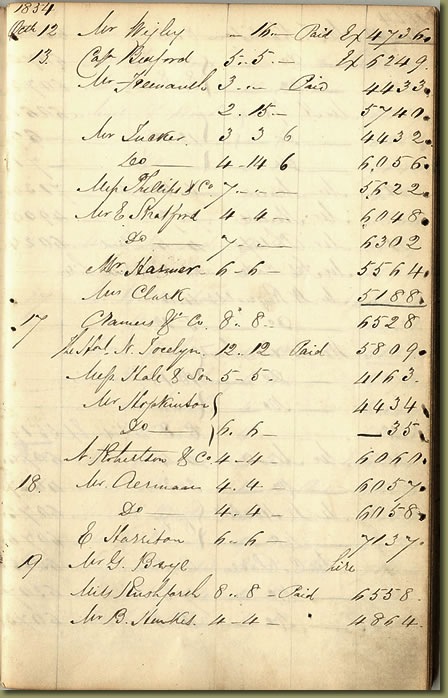 1854
Octr 12 Mr Wigley - 16 - Paid Ex 4736.
13. Capt Bedford 5.. 5. - Ex 6249.
Mr 3 .. - Paid 4433.
2. 15 - 5740.
Mr Tucker 3 3 6 4432.
Do - 4 - 14 6 6056.
Mess Phillips & Co. 7 - .. - 5622.
Mr E. Stratford 4 - 4 - 6048.
Do 7 - .. - 6302
Mr Harmer - 6 - 6 - 5564.
Mrs Clark 5188.
17 Cramers & Co. 8 .. 8 .. - 6528
The Honl. N. Jocelyn. 12 .. 12 Paid 5809.
Mess Hale & Son 5 - 5 - 4163.
Mr Hopkinson 4434
Do 6. 6 - — 35.
N. Robertson & Co. 4 - 4 - 6060.
18. Mr 4 .. 4 - 6057.
Do 4 .. 4 - 6058.
E Harrison 6 - 6 - 7137.
19 Mr G. hire
Miss Rushforth 8 .. 8 - Paid 6558.
Mr B. 4 - 4 - 4864.